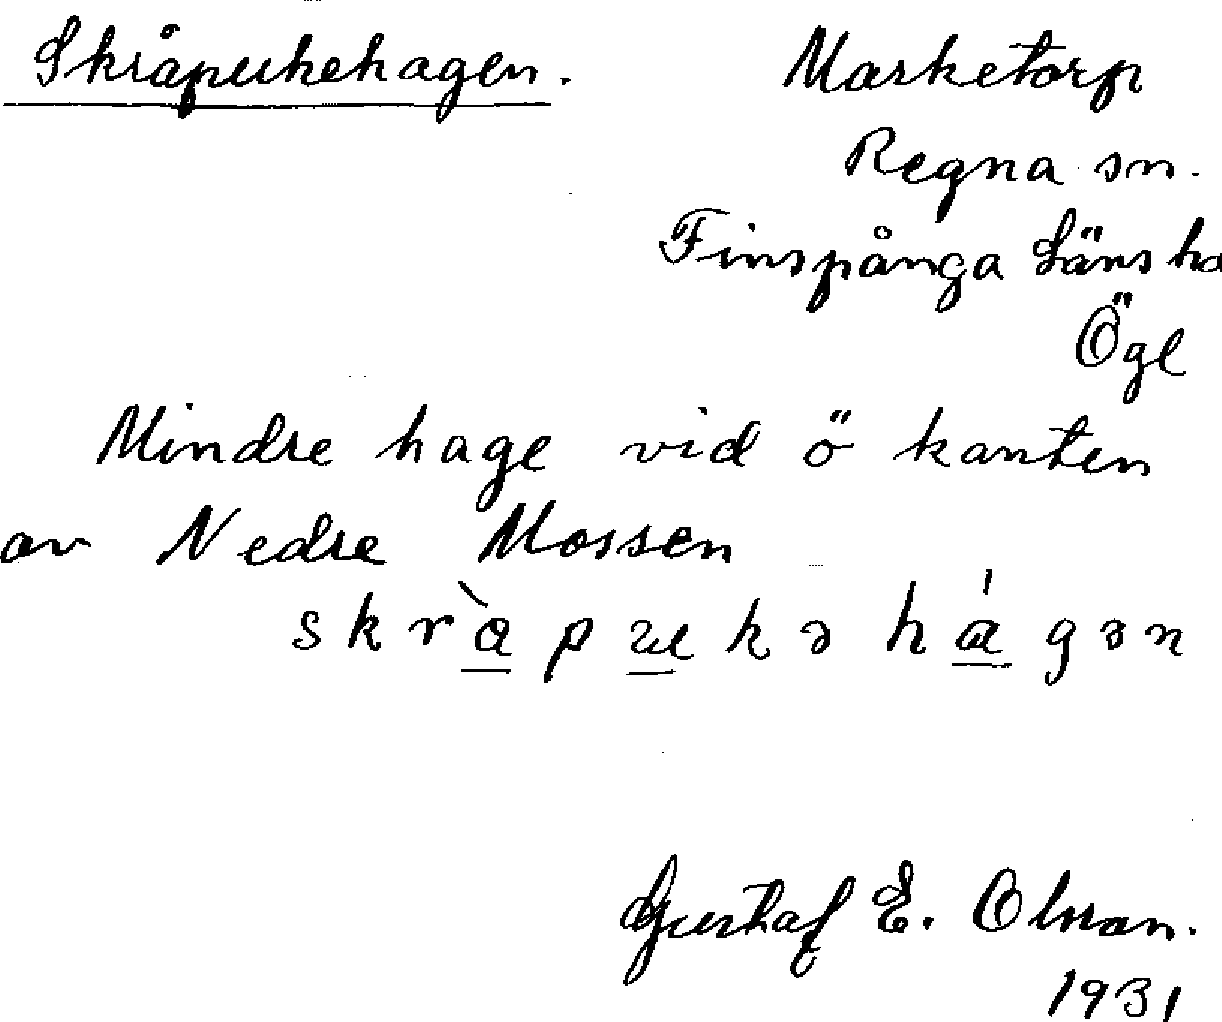 Skråpukehagen. Marketorp
Regna sn.
Finspånga Läns hd
Ögl
Mindre hage vid ö kanten
av Nedre Mossen
skràpukəhágən
Gustaf E. Olsson.
1931